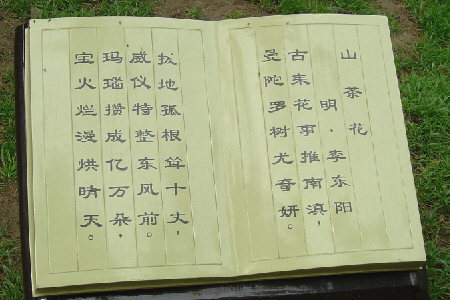 山茶花
明·李东阳
古来花事推南滇，
曼陀罗树尤奇妍。
拔地孤根耸十丈，
威仪特整东风前。
玛瑙攒成亿万朵，
宝火烂漫烘晴天。